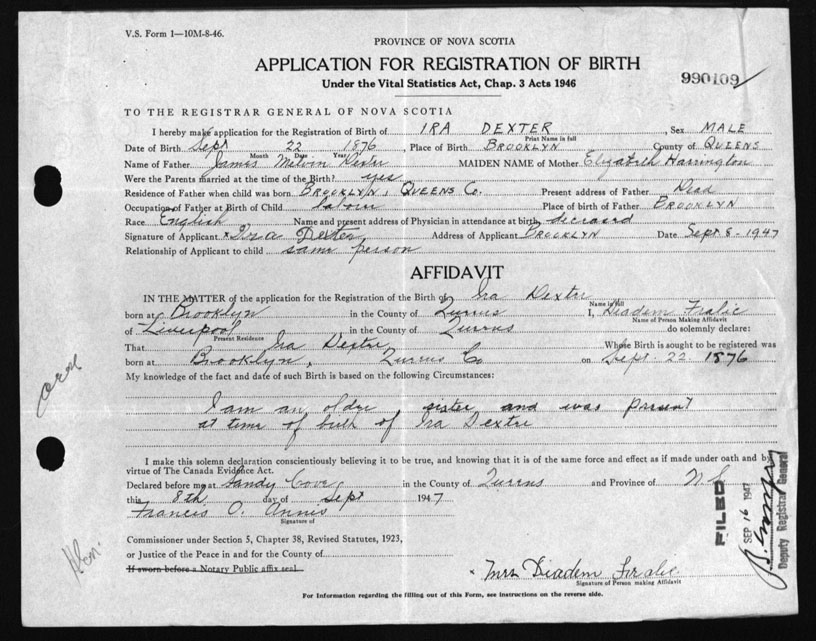 V.S. Form 1—10M-8-46.
PROVINCE OF NOVA SCOTIA
APPLICATION FOR REGISTRATION OF BIRTH
Under the Vital Statistics Act, Chap. 3 Acts 1946
990109
TO THE REGISTRAR GENERAL OF NOVA SCOTIA
I hereby make application for the Registration of Birth of IRA DEXTER, Sex MALE
Print Name in full
Date of Birth Sept 22 1876, Place of Birth BROOKLYN County of QUEENS
Month Day Year
Name of Father James Melvin Dexter MAIDEN NAME of Mother Elizabeth Harrington
Were the Parents married at the time of the Birth? yes
Residence of Father when child was born BROOKLYN, QUEENS Co. Present address of Father Dead
Occupation of Father at Birth of Child labour Place of birth of Father BROOKLYN
Race English Name and present address of Physician in attendance at birth deceased
Signature of Applicant x Ira Dexter Address of Applicant BROOKLYN Date Sept 8-1947
Relationship of Applicant to child same person
AFFIDAVIT
IN THE MATTER of the application for the Registration of the Birth of Ira Dexter
Name in full
born at Brooklyn in the County of Queens I, Diadem Fralic
Name of Person Making Affidavit
of Liverpool in the County of Queens do solemnly declare:
Present Residence
That Ira Dexter Whose Birth is sought to be registered was
born at Brooklyn, Queens Co on Sept. 22 1876
My knowledge of the fact and date of such Birth is based on the following Circumstances:
I am an older sister and was present
at time of birth of Ira Dexter
I make this solemn declaration conscientiously believing it to be true, and knowing that it is of the same force and effect as if made under oath and by
virtue of The Canada Evidence Act.
Declared before me at Sandy Cove in the County of Queens and Province of N.S
this 8th day of Sept 1947
Francis O. Annis
Signature of
Commissioner under Section 5, Chapter 38, Revised Statutes, 1923,
or Justice of the Peace in and for the County of
If sworn before a Notary Public affix seal
x Mrs Diadem Fralic
Signature of Person making Affidavit
For Information regarding the filling out of this Form, see instructions on the reverse side.
FILED
SEP 16 1947
Deputy Registrar General